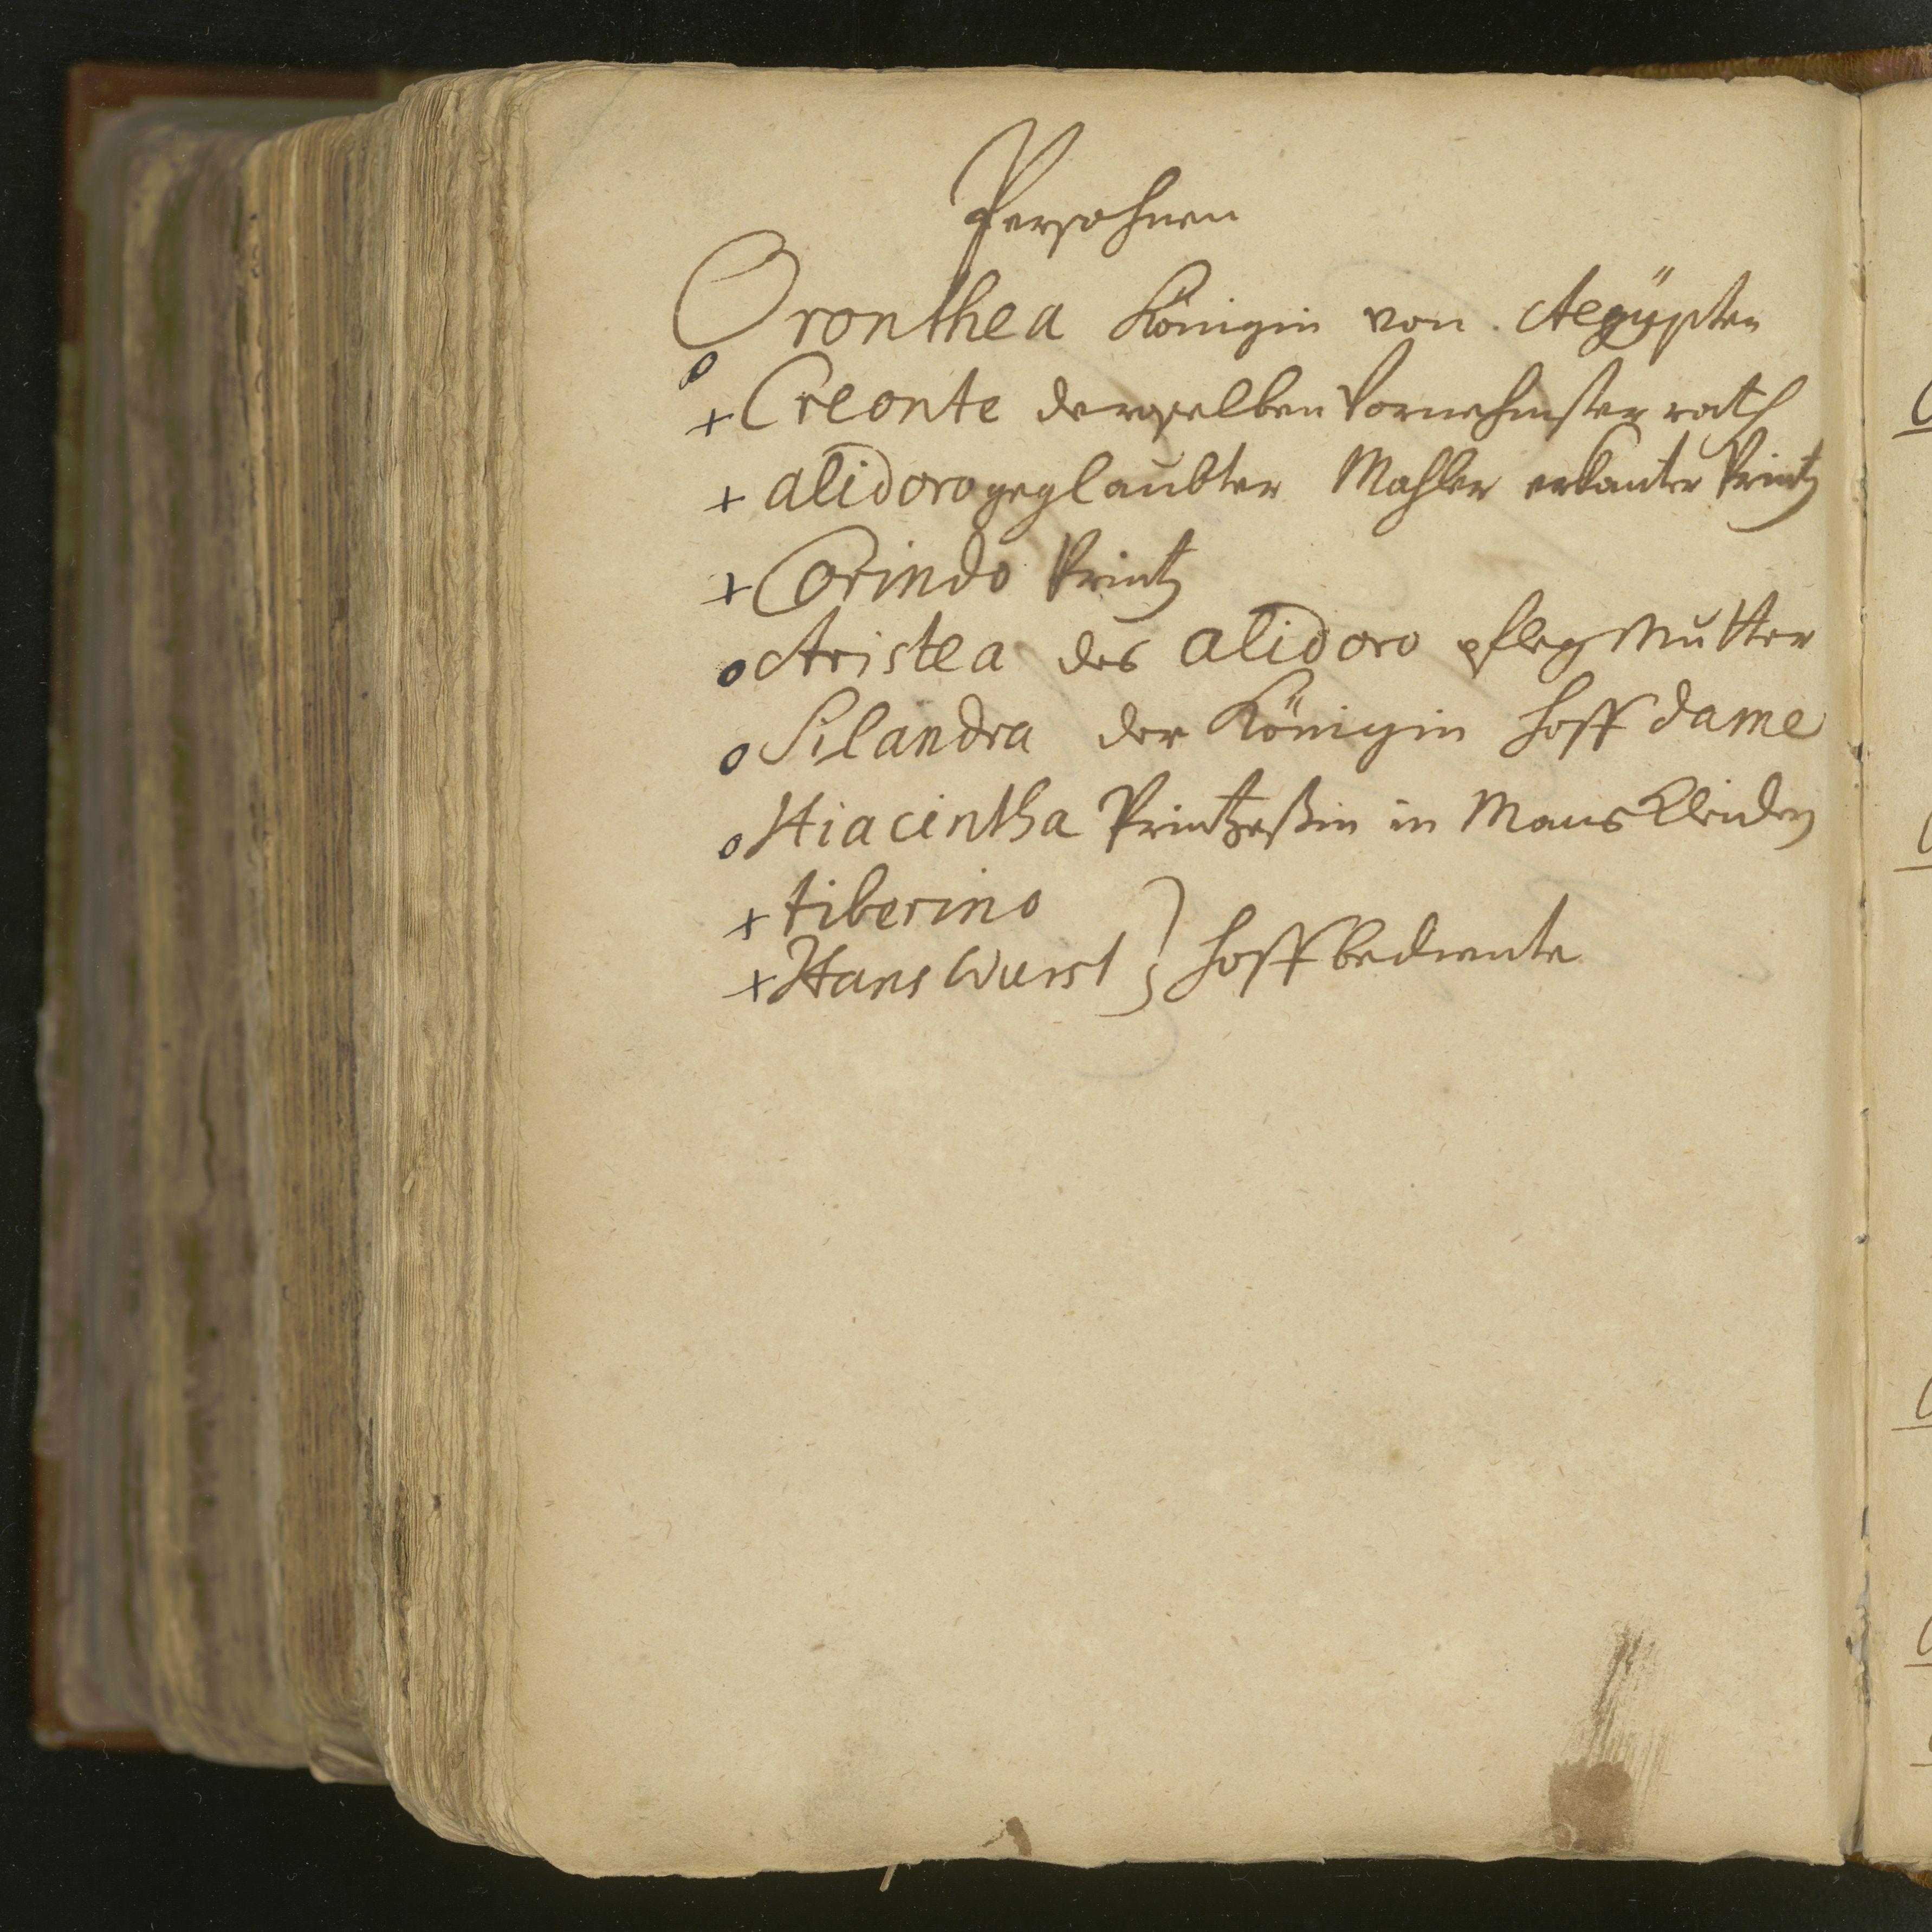 Persohnen
Oronthea Königin von Aegÿpten
o
+ Creonte deroselben Vornehmster rath
+ alidoro geglaubter Mahler erkanter Printz
+ Corindo Printz
o Aristea des alidoro pfleg Mutter
o Silandra der Königin hoff dame
o Hiacintha Printzeßin in Manskleidern
+ tiberino
+ Hans Wurst } hoffbediente